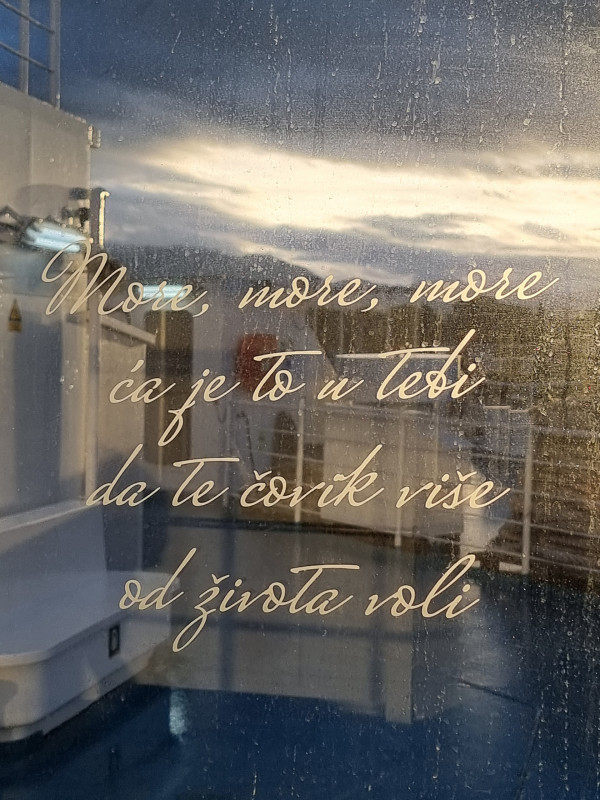 More, more, more
ća je to u tebi
da te čovik više
od života voli